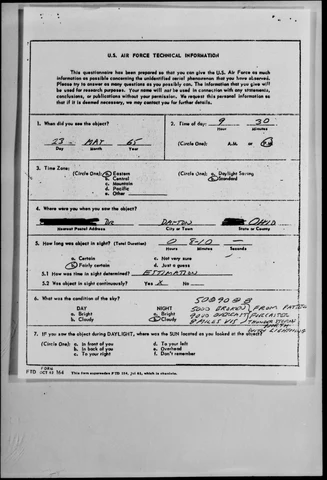 U.S. AIR FORCE TECHNICAL INFORMATION
This questionnaire has been prepared so that you can give the U.S. Air Force as much
information as possible concerning the unidentified aerial phenomenon that you have observed.
Please try to answer as many questions as you possibly can. The information that you give will
be used for research purposes. Your name will not be used in connection with any statements,
conclusions, or publications without your permission. We request this personal information so
that if it is deemed necessary, we may contact you for further details.
1. When did you see the object?
23 MAY 65
Day Month Year
2. Time of day: 9 30
Hour Minutes
(Circle One): A.M. or P.M.
3. Time Zone:
(Circle One): a. Eastern
b. Central
c. Mountain
d. Pacific
e. Other
(Circle One): a. Daylight Saving
b. Standard
4. Where were you when you saw the object?
AVE DAYTON OHIO
Nearest Postal Address City or Town State or County
5. How long was object in sight? (Total Duration) 0 8-10 —
Hours Minutes Seconds
a. Certain c. Not very sure
b. Fairly certain d. Just a guess
5.1 How was time in sight determined? ESTIMATION
5.2 Was object in sight continuously? Yes X No
6. What was the condition of the sky?
DAY NIGHT
a. Bright a. Bright
b. Cloudy b. Cloudy
5000 BROKEN FROM
9000 OVERCAST FORECASTER
8 MILES VIS THUNDERSTORM
NORTH
WITH LIGHTNING
7. If you saw the object during DAYLIGHT, where was the SUN located as you looked at the object?
(Circle One): a. In front of you d. To your left
b. In back of you e. Overhead
c. To your right f. Don't remember
FTD FORM OCT 62 164 This form supersedes FTD 164, Jul 61, which is obsolete.